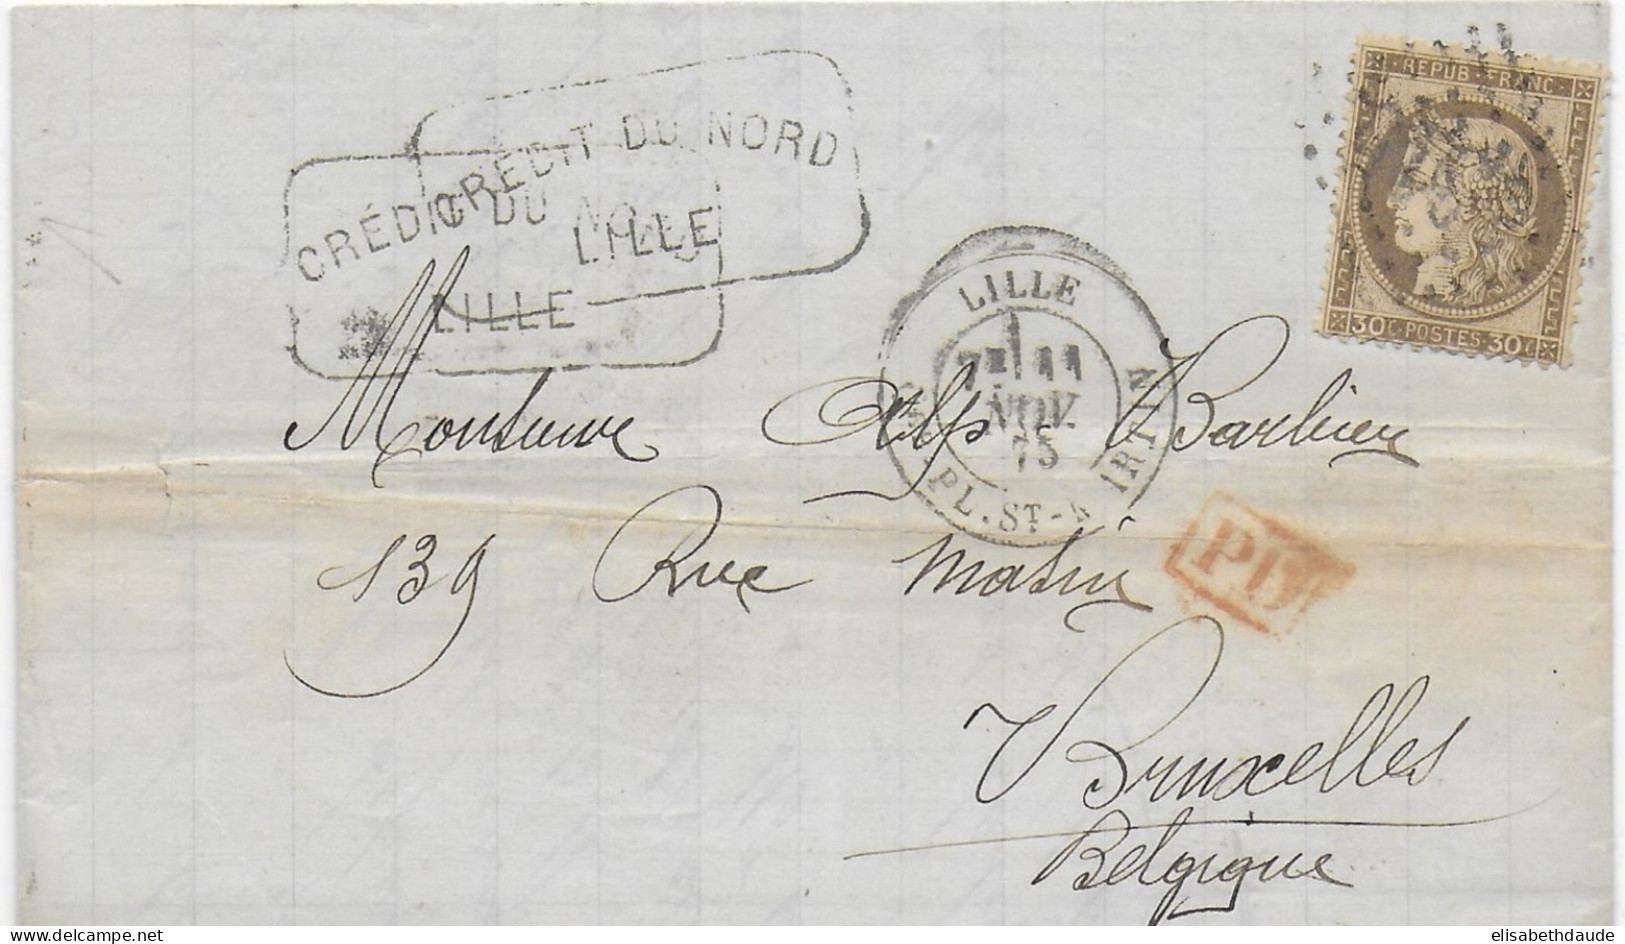 REPUB · FRANC ·
30 C · POSTES · 30 C
CRÉDIT DU NORD
LILLE
CRÉDIT DU NORD
LILLE
LILLE
7E 11
NOV.
75
PL. ST-M RTIN
Monsieur Alp Barbier
139 Rue
PD
Bruxelles
Belgique
delcampe.net
elisabethdaude